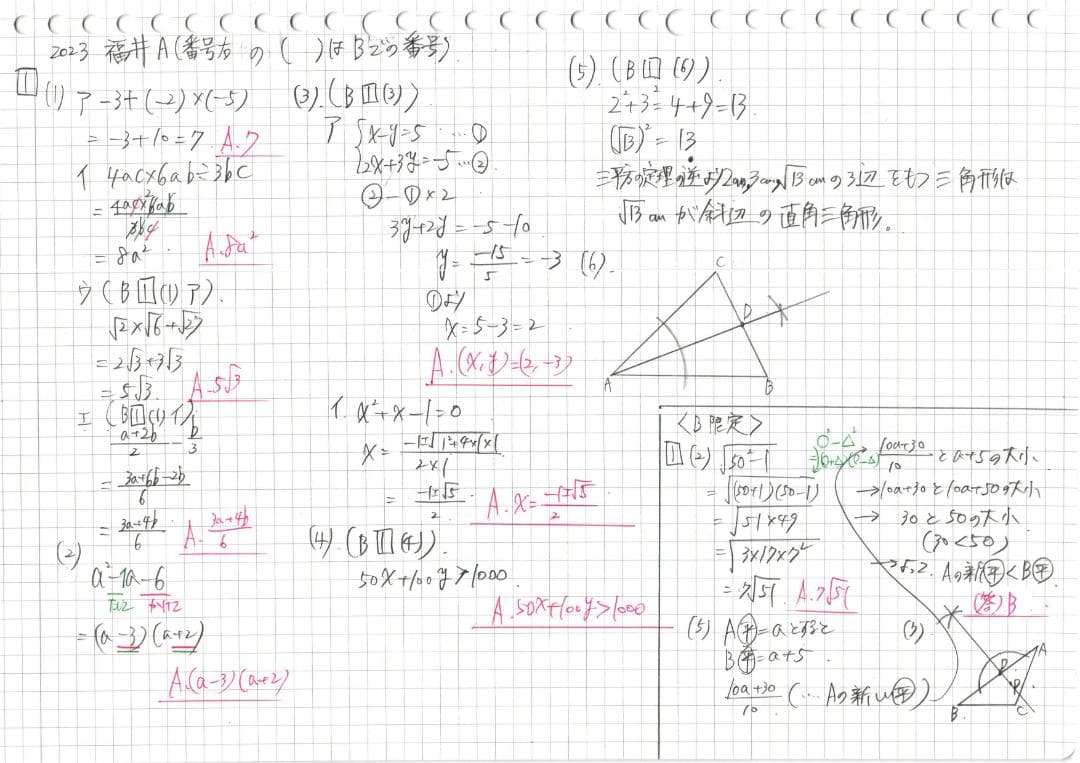 2023 福井A(番号右の( )はBでの番号)
1
(1) ア -3+(-2)×(-5)
= -3+10=7 A.7
イ 4ac×6ab÷3bc
= 4ac×6ab/3bc
= 8a² A.8a²
ウ (B1(1)ア).
√2×√6+√27
= 2√3+3√3
= 5√3 A.5√3
エ (B1(1)イ)
a+2b/2 - b/3
= 3a+6b-2b/6
= 3a+4b/6 A. 3a+4b/6
(2)
a²-1a-6
たして かけて
= (a-3)(a+2)
A.(a-3)(a+2)
(3).(B1(3))
ア { x-y=5 …①
2x+3y=-5…②
②-①×2
3y+2y=-5-10
y= -15/5 =-3
①より
x=5-3=2
A.(x,y)=(2,-3)
イ. x²+x-1=0
x= -1±√1²+4×1×1/2×1
= -1±√5/2 A.x= -1±√5/2
(4).(B1(4)).
50x+100y>1000.
A.50x+100y>1000
(5).(B1(6)).
2²+3²=4+9=13
(√13)²=13
三平方の定理の逆より2cm,3cm,√13cmの3辺をもつ三角形は
√13cmが斜辺の直角三角形。
(6).
C
D
A
B
<B限定>
1 (2) √50²-1 ○²-△²
=(○+△)(○-△)
= √(50+1)(50-1)
= √51×49
= √3×17×7²
= 7√51 A.7√51
(5) A㊥=aとすると
B㊥=a+5.
10a+30/10 (…Aの新しい㊥)
→ 10a+30/10 とa+5の大小
→10a+30と10a+50の大小
→ 30と50の大小
(30<50)
→よって、Aの新㊥<B㊥
(答)B
A
P
B
C